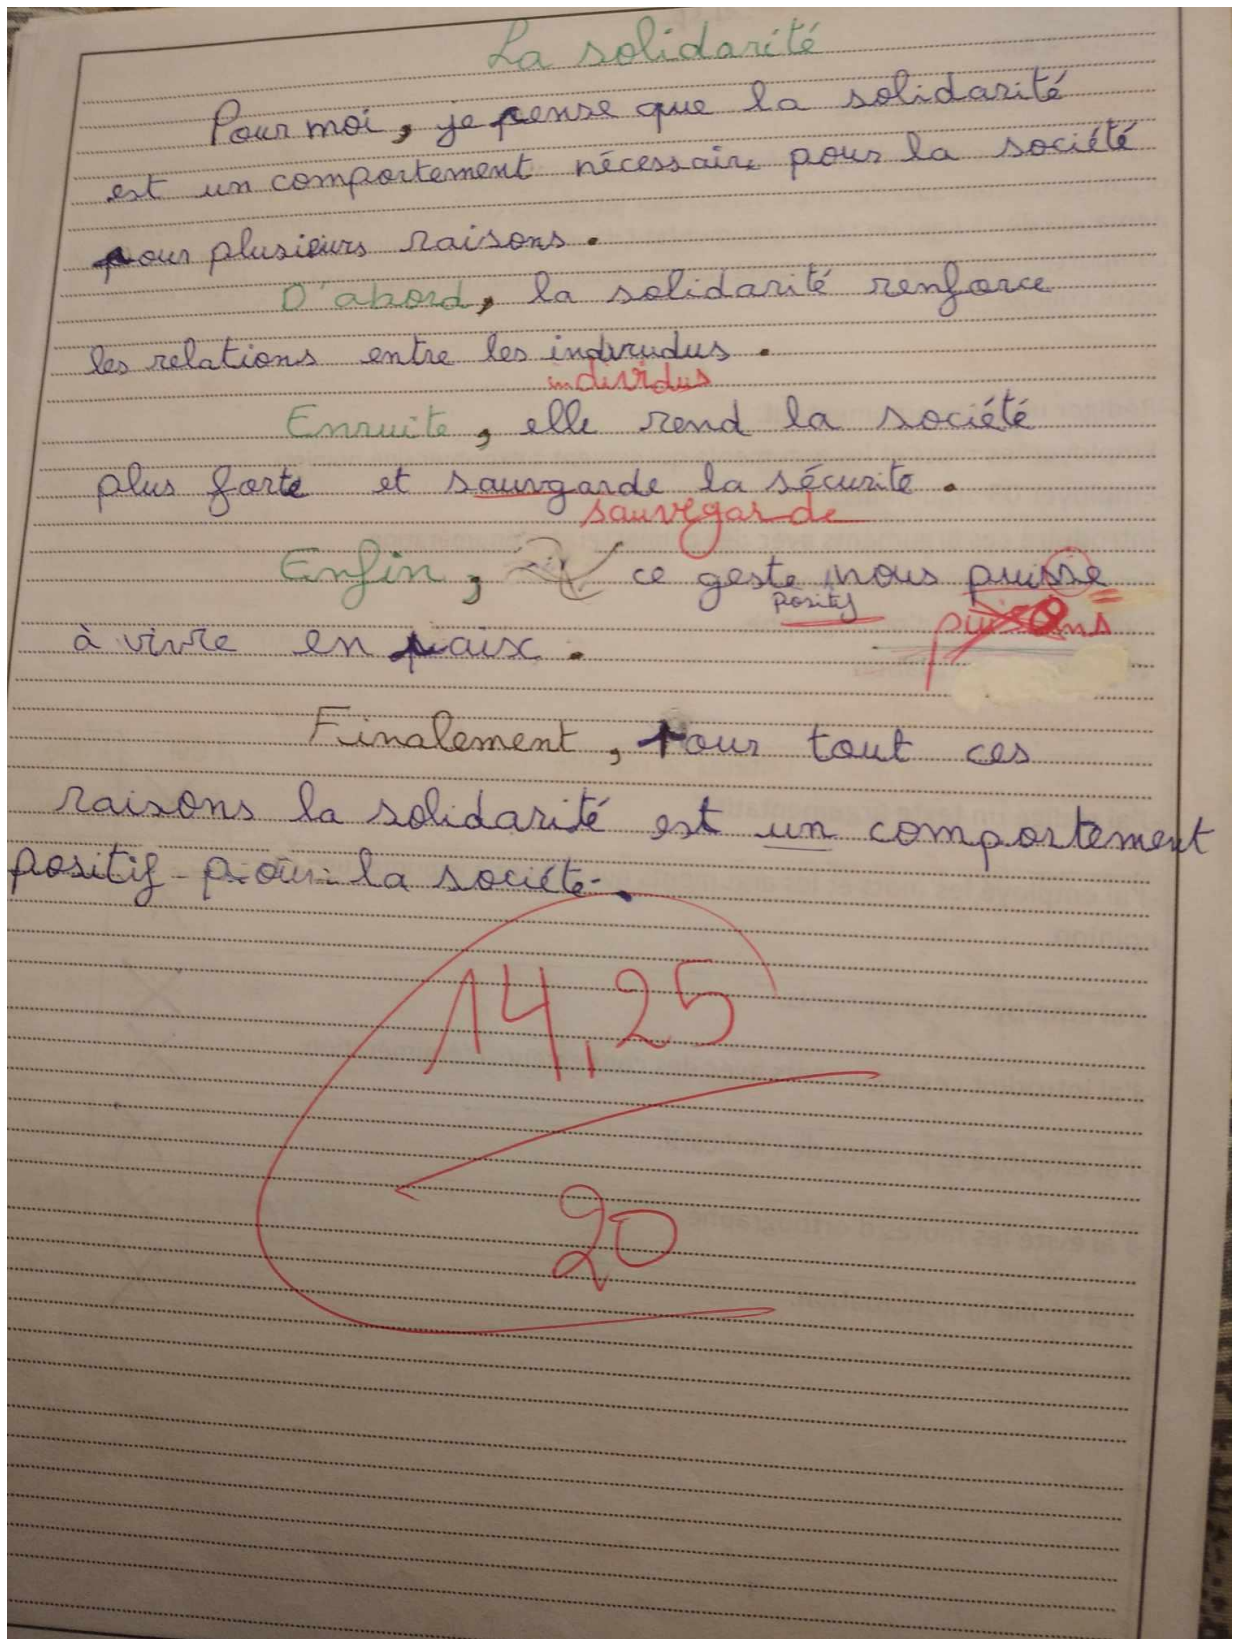 La solidarité
Pour moi, je pense que la solidarité
est un comportement nécessaire pour la société
pour plusieurs raisons.
D'abord, la solidarité renforce
les relations entre les indivudus.
individus
Ensuite, elle rend la société
plus forte et sauvgarde la sécurité.
sauvegarde
Enfin, ce geste nous puisse
positif
à vivre en paix.
Finalement, Pour tout ces
raisons la solidarité est un comportement
positif pour la société.
14,25
20